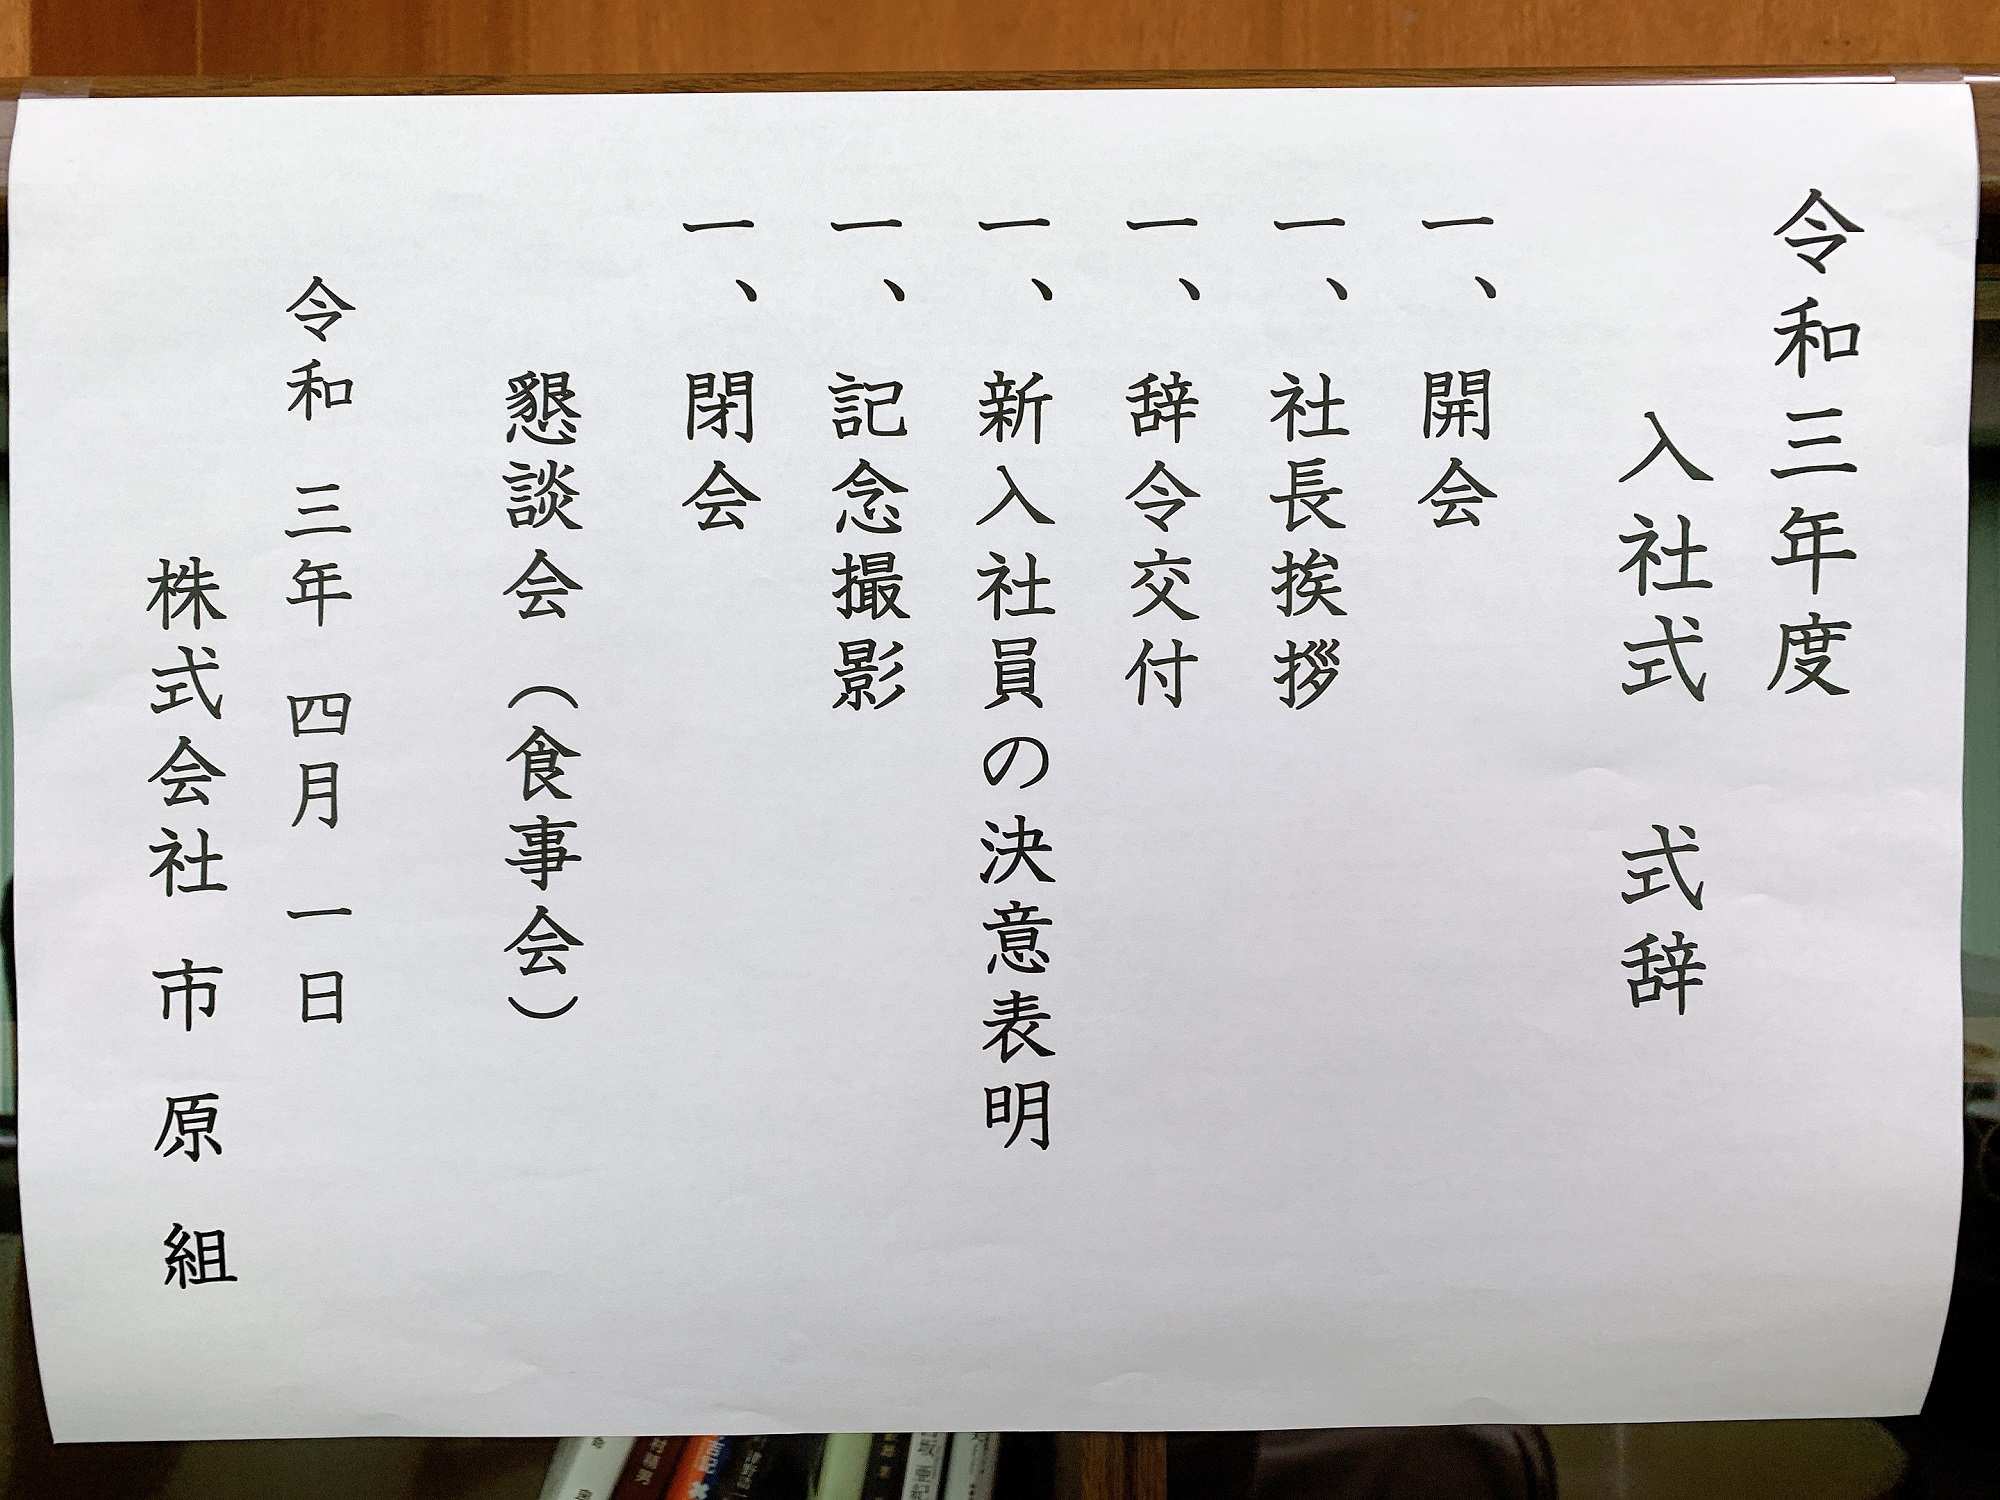 令和三年度
入社式 式辞
一、開会
一、社長挨拶
一、辞令交付
一、新入社員の決意表明
一、記念撮影
一、閉会
懇談会（食事会）
令和 三年 四月 一日
株式会社 市 原 組